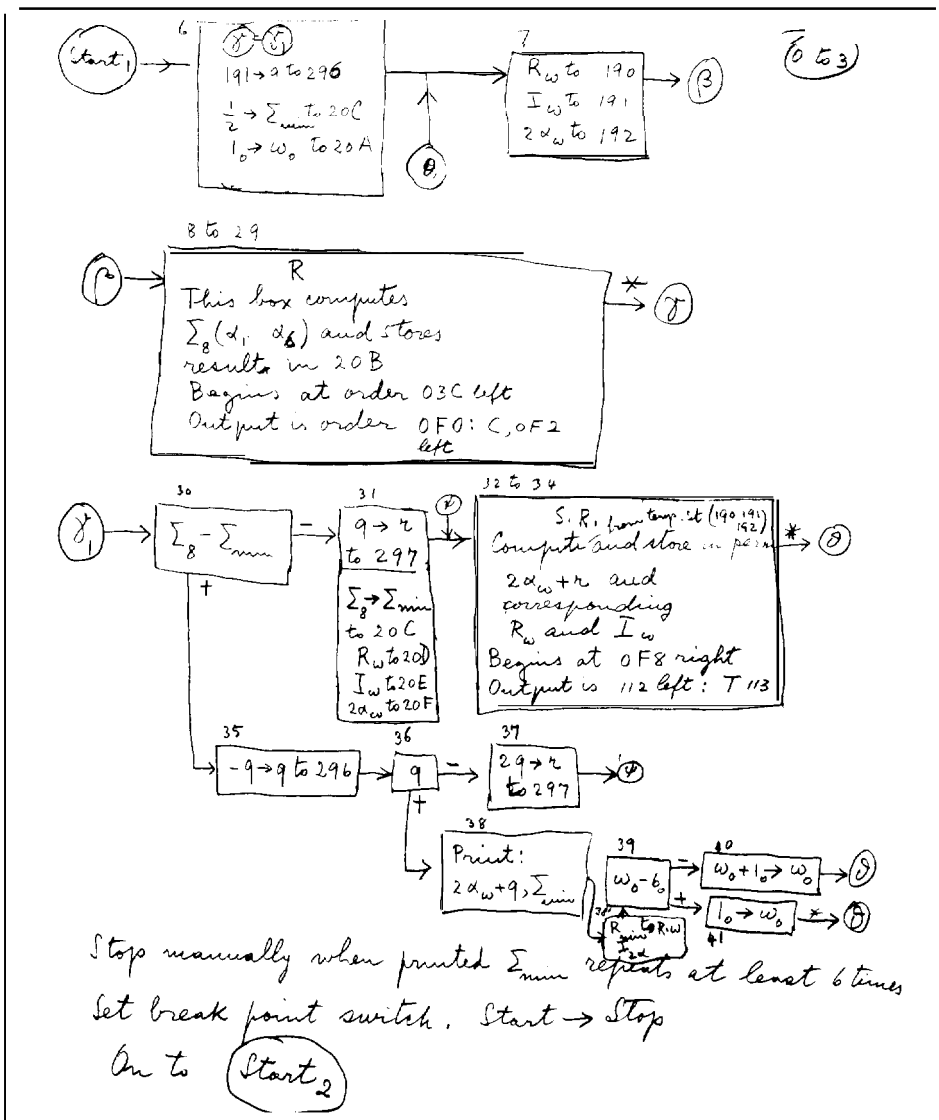 Start₁
6
γ=γ₁
191→q to 296
½→Σmin to 20C
1₀→ω₀ to 20A
θ₁
7
Rω to 190
Iω to 191
2αω to 192
β
0 to 3
8 to 29
β
R
This box computes
Σ₈(α₁, α₆) and stores
result in 20B
Begins at order 03C left
Output is order 0F0: C, 0F2
left
*
γ
γ₁
30
Σ₈ - Σmin
-
+
31
q→r
to 297
Σ₈→Σmin
to 20C
Rω to 20D
Iω to 20E
2αω to 20F
32 to 34
S.R. from temp. st (190 191
192)
Compute and store in perm
2αω+r and
corresponding
Rω and Iω
Begins at 0F8 right
Output is 112 left: T 113
*
35
-q→q to 296
36
q
-
+
37
2q→r
to 297
38
Print:
2αω+q, Σmin
39
ω₀-6₀
-
+
40
ω₀+1₀→ω₀
41
1₀→ω₀
*
θ
Rmin to Rω
Stop manually when printed Σmin repeats at least 6 times
Set break point switch. Start → Stop
On to Start₂